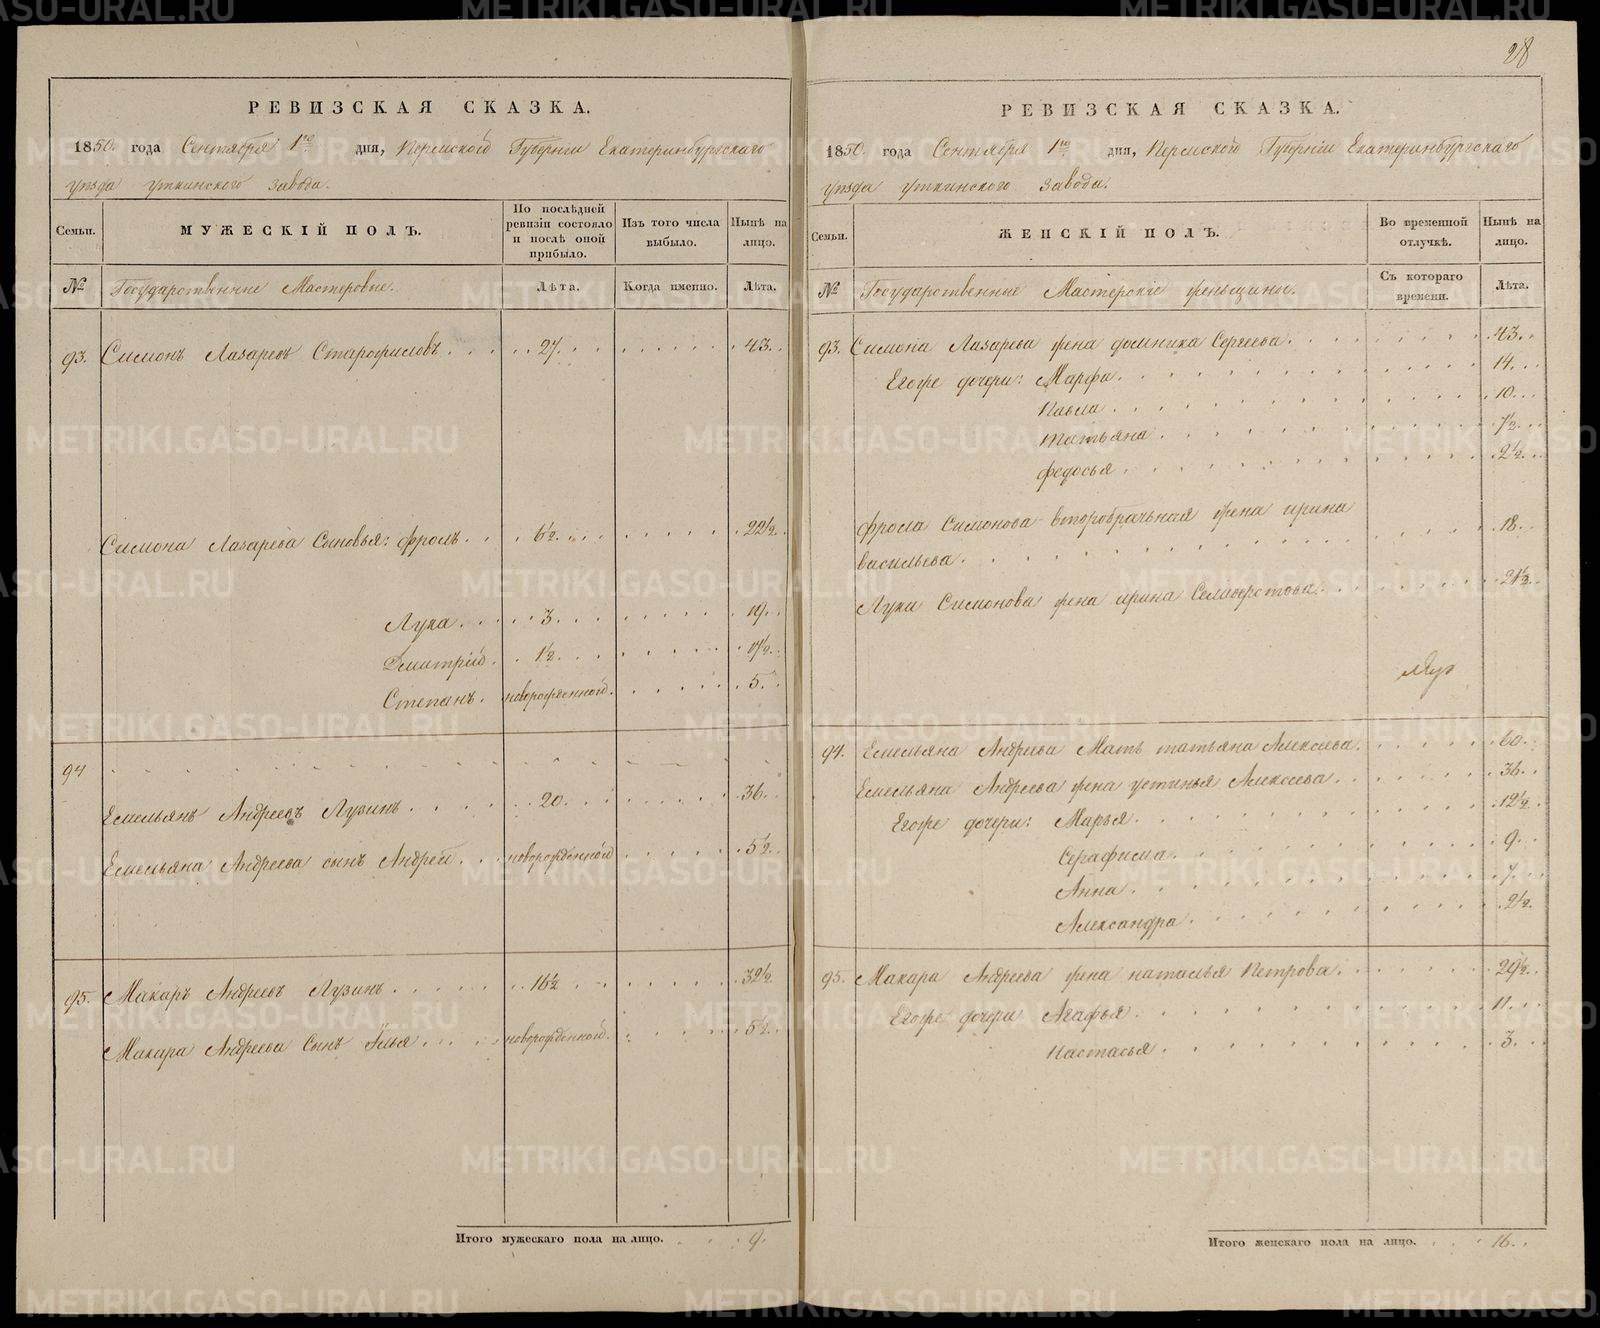 28
РЕВИЗСКАЯ СКАЗКА.
1850. года Сентября 1го дня, Пермской Губерніи Екатеринбургскаго
уѣзда уткинского завода.
Семьи.
МУЖЕСКІЙ ПОЛЪ.
По послѣдней ревизіи состояло и послѣ оной прибыло.
Изъ того числа выбыло.
Нынѣ на лицо.
№
Государственные Мастеровые.
Лѣта.
Когда именно.
Лѣта.
93. Симонъ Лазаревъ Старофиловъ 27. 43.
Симона Лазарева Сыновья: фролъ 6½. 22½.
Лука 3. 19.
Дмитрій 1½. 17½.
Степанъ. новорожденной. 5.
94
Емельянъ Андреевъ Лузинъ 20. 36.
Емельяна Андреева сынъ Андрей новорожденной 5½.
95. Макаръ Андреевъ Лузинъ 16½ 32½
Макара Андреева Сынъ Илья новорожденной. 5½.
Итого мужескаго пола на лицо. 9.
РЕВИЗСКАЯ СКАЗКА.
1850. года Сентября 1го дня, Пермской Губерніи Екатеринбургскаго
уѣзда уткинского завода.
Семьи.
ЖЕНСКІЙ ПОЛЪ.
Во временной отлучкѣ.
Нынѣ на лицо.
№
Государственные Мастерскіе женьщины.
Съ котораго времени.
Лѣта.
93. Симона Лазарева жена домника Сергеева 43.
Егоже дочери: Марфа 14.
Павла 10.
татьяна 7½.
федосья 2½.
фрола Симонова второбрачьная жена ирина
васильева. 18.
Луки Симонова жена ирина Селиверстова 21½.
94. Емельяна Андреева Мать татьяна Алексеева 60.
Емельяна Андреева жена устинья Алексеева 36.
Егоже дочери: Марья 12½.
Серафима 9.
Анна 7.
Александра 2½.
95. Макара Андреева жена наталья Петрова 29½.
Егоже дочери Агафья 11.
Настасья 3.
Итого женскаго пола на лицо. 16.
METRIKI.GASO-URAL.RU